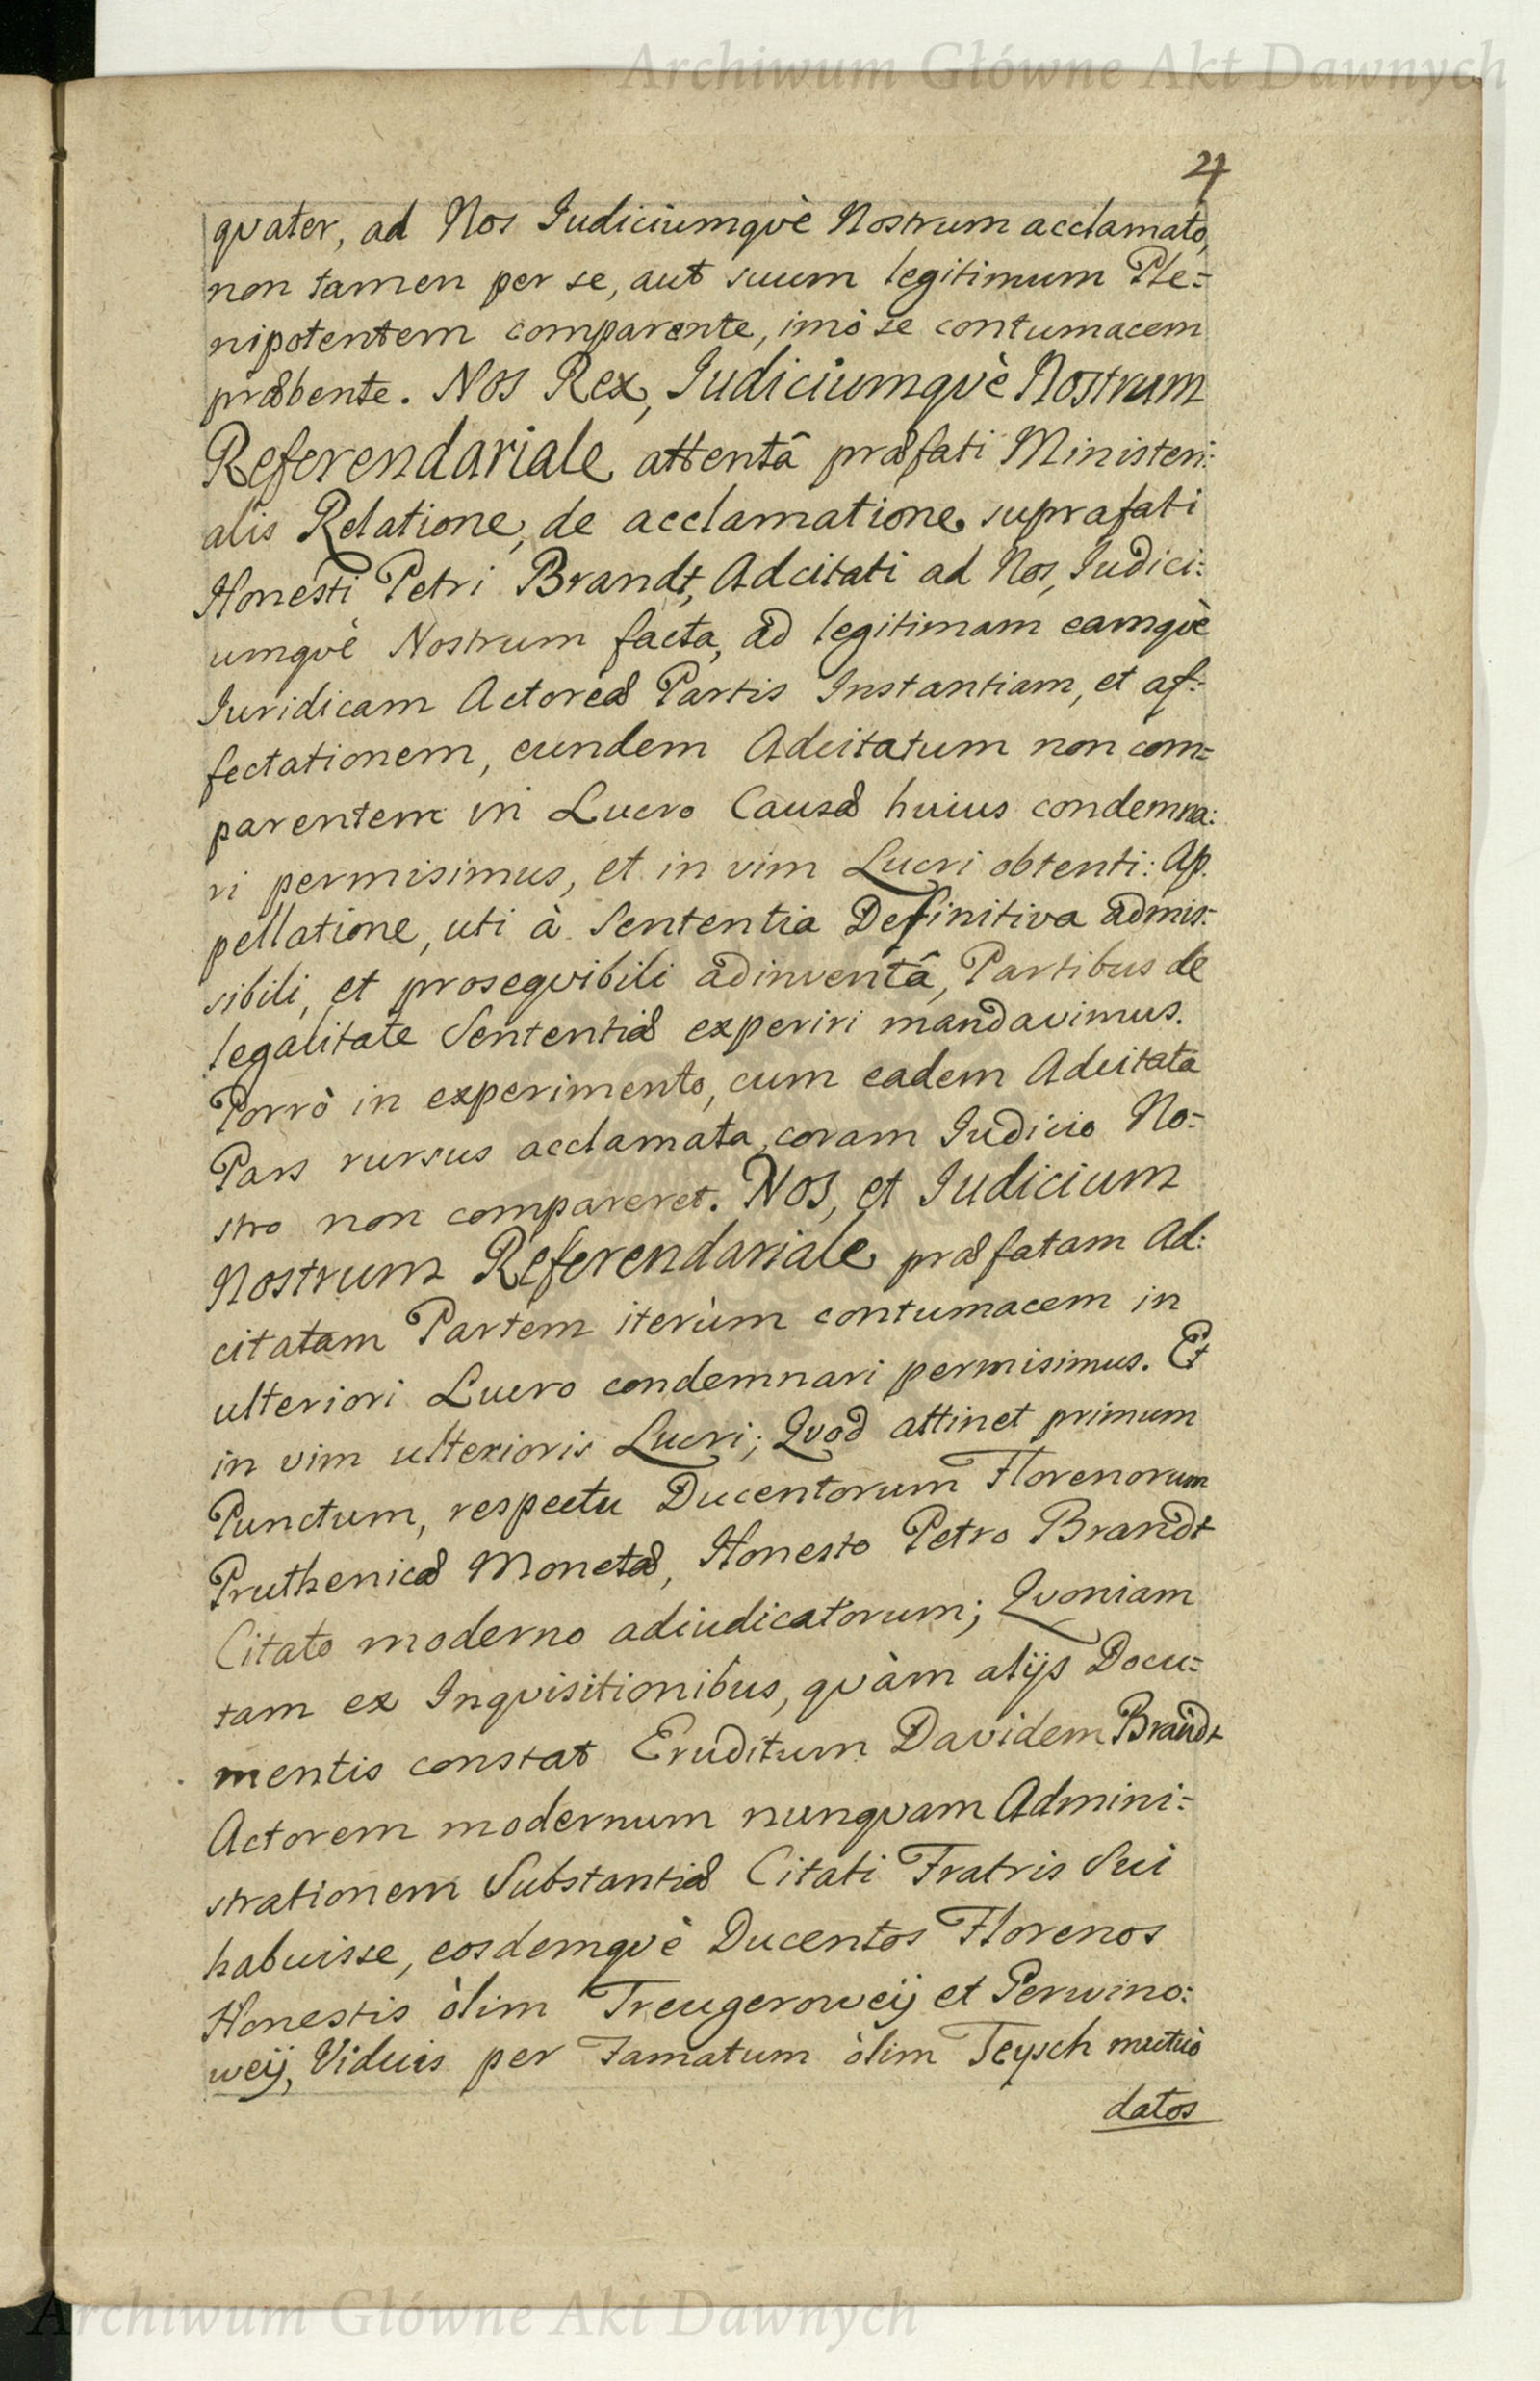 Archiwum Główne Akt Dawnych
24
qvater, ad Nos Iudiciumqvè Nostrum acclamato,
non tamen per se, aut suum legitimum Ple=
nipotentem comparente, imò se contumacem
præbente. Nos Rex, Iudiciumqvè Nostrum
Referendariale attentâ præfati Ministeri:
alis Relatione, de acclamatione suprafati
Honesti Petri Brandt, Adcitati ad Nos, Iudici:
umqvè Nostrum facta, ad legitimam eamqvè
Iuridicam Actoreæ Partis Instantiam, et af:
fectationem, eundem Adcitatum non com=
parentem in Lucro Causæ huius condemna:
ri permisimus, et in vim Lucri obtenti: Ap.
pellatione, uti à Sententia Definitiva admis:
sibili, et proseqvibili adinventâ, Partibus de
legalitate Sententiæ experiri mandavimus.
Porrò in experimento, cum eadem Adcitata
Pars rursus acclamata, coram Iudicio No=
stro non compareret. Nos, et Iudicium
Nostrum Referendariale præfatam Ad:
citatam Partem iterùm contumacem in
ulteriori Lucro condemnari permisimus. Et
in vim ulterioris Lucri; Qvod attinet primum
Punctum, respectu Ducentorum Florenorum
Pruthenicæ Monetæ, Honesto Petro Brandt
Citato moderno adiudicatorum; Qvoniam
tam ex Inqvisitionibus, qvàm alijs Docu=
mentis constat Eruditum Davidem Brandt
Actorem modernum nunqvam Admini=
strationem Substantiæ Citati Fratris Sui
habuisse, eosdemqvè Ducentos Florenos
Honestis òlim Treugeroweÿ et Perwino:
weÿ, Viduis per Famatum òlim Teysch mutuò
datos
Archiwum Główne Akt Dawnych